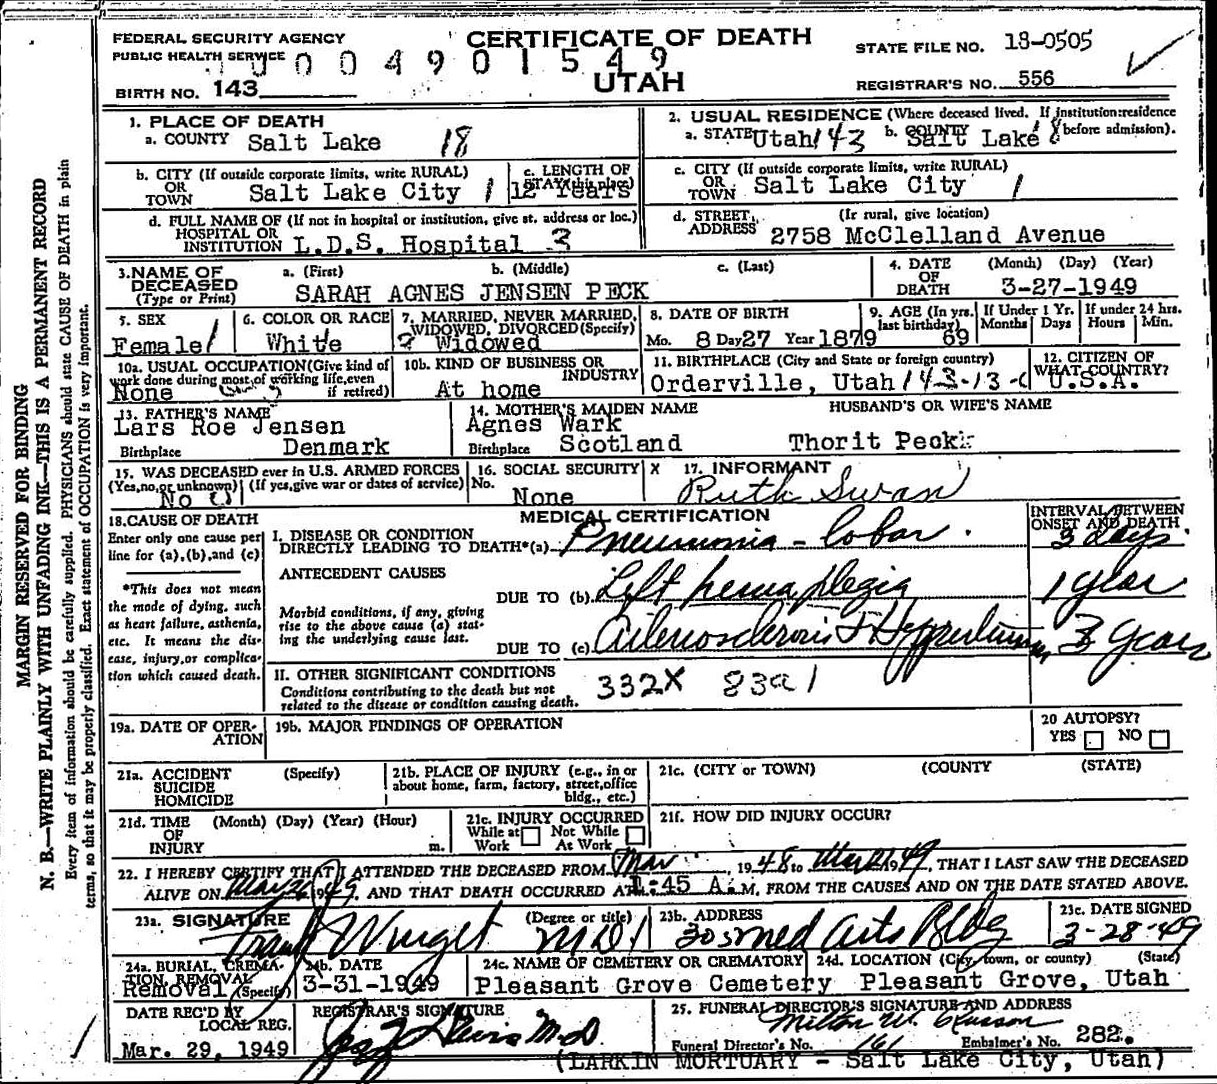 MARGIN RESERVED FOR BINDING
N. B.—WRITE PLAINLY WITH UNFADING INK—THIS IS A PERMANENT RECORD
Every item of information should be carefully supplied. PHYSICIANS should state CAUSE OF DEATH in plain
terms, so that it may be properly classified. Exact statement of OCCUPATION is very important.
FEDERAL SECURITY AGENCY CERTIFICATE OF DEATH STATE FILE NO. 18-0505
PUBLIC HEALTH SERVICE 0 0 4 9 0 1 5 4 9
BIRTH NO. 143 UTAH REGISTRAR'S NO. 556
1. PLACE OF DEATH 2. USUAL RESIDENCE (Where deceased lived. If institution: residence
a. COUNTY Salt Lake 18 a. STATE Utah 143 b. COUNTY Salt Lake 18 before admission).
b. CITY (If outside corporate limits, write RURAL) c. LENGTH OF c. CITY (If outside corporate limits, write RURAL)
OR Salt Lake City 1 STAY (in this place) OR Salt Lake City 1
TOWN 12 Years TOWN
d. FULL NAME OF (If not in hospital or institution, give st. address or loc.) d. STREET (If rural, give location)
HOSPITAL OR ADDRESS 2758 McClelland Avenue
INSTITUTION L.D.S. Hospital 3
3. NAME OF a. (First) b. (Middle) c. (Last) 4. DATE (Month) (Day) (Year)
DECEASED OF
(Type or Print) SARAH AGNES JENSEN PECK DEATH 3-27-1949
5. SEX 6. COLOR OR RACE 7. MARRIED, NEVER MARRIED, 8. DATE OF BIRTH 9. AGE (In yrs. If Under 1 Yr. If under 24 hrs.
WIDOWED, DIVORCED (Specify) last birthday) Months Days Hours Min.
Female 1 White Widowed Mo. 8 Day 27 Year 1879 69
10a. USUAL OCCUPATION (Give kind of 10b. KIND OF BUSINESS OR 11. BIRTHPLACE (City and State or foreign country) 12. CITIZEN OF
work done during most of working life, even INDUSTRY WHAT COUNTRY?
None if retired) At home Orderville, Utah 143-13 U.S.A.
13. FATHER'S NAME 14. MOTHER'S MAIDEN NAME HUSBAND'S OR WIFE'S NAME
Lars Roe Jensen Agnes Wark
Birthplace Denmark Birthplace Scotland Thorit Peck
15. WAS DECEASED ever in U.S. ARMED FORCES 16. SOCIAL SECURITY X 17. INFORMANT
(Yes, no, or unknown) (If yes, give war or dates of service) No.
No 0 None Ruth Swan
18. CAUSE OF DEATH MEDICAL CERTIFICATION INTERVAL BETWEEN
Enter only one cause per I. DISEASE OR CONDITION ONSET AND DEATH
line for (a), (b), and (c) DIRECTLY LEADING TO DEATH*(a) Pneumonia - lobar. 3 days
ANTECEDENT CAUSES
*This does not mean DUE TO (b) Left hemaplegia 1 year
the mode of dying, such Morbid conditions, if any, giving
as heart failure, asthenia, rise to the above cause (a) stat-
etc. It means the dis- ing the underlying cause last. DUE TO (c) Arteriosclerosis & Hypertension 3 years
ease, injury, or complica-
tion which caused death. II. OTHER SIGNIFICANT CONDITIONS
Conditions contributing to the death but not 332X 83a1
related to the disease or condition causing death.
19a. DATE OF OPER- 19b. MAJOR FINDINGS OF OPERATION 20 AUTOPSY?
ATION YES NO
21a. ACCIDENT (Specify) 21b. PLACE OF INJURY (e.g., in or 21c. (CITY or TOWN) (COUNTY) (STATE)
SUICIDE about home, farm, factory, street, office
HOMICIDE bldg., etc.)
21d. TIME (Month) (Day) (Year) (Hour) 21e. INJURY OCCURRED 21f. HOW DID INJURY OCCUR?
OF While at Not While
INJURY m. Work At Work
22. I HEREBY CERTIFY THAT I ATTENDED THE DECEASED FROM Mar 1948 to Mar 1949, THAT I LAST SAW THE DECEASED
ALIVE ON Mar 26 1949, AND THAT DEATH OCCURRED AT 1:45 A.M, FROM THE CAUSES AND ON THE DATE STATED ABOVE.
23a. SIGNATURE (Degree or title) 23b. ADDRESS 23c. DATE SIGNED
M.D. Med Arts Bldg 3-28-49
24a. BURIAL, CREMA- 24b. DATE 24c. NAME OF CEMETERY OR CREMATORY 24d. LOCATION (City, town, or county) (State)
TION, REMOVAL
Removal (Specify) 3-31-1949 Pleasant Grove Cemetery Pleasant Grove, Utah
DATE REC'D BY REGISTRAR'S SIGNATURE 25. FUNERAL DIRECTOR'S SIGNATURE AND ADDRESS
LOCAL REG. Milton W.
Mar. 29, 1949 M.D. Funeral Director's No. 161 Embalmer's No. 282.
(LARKIN MORTUARY - Salt Lake City, Utah)